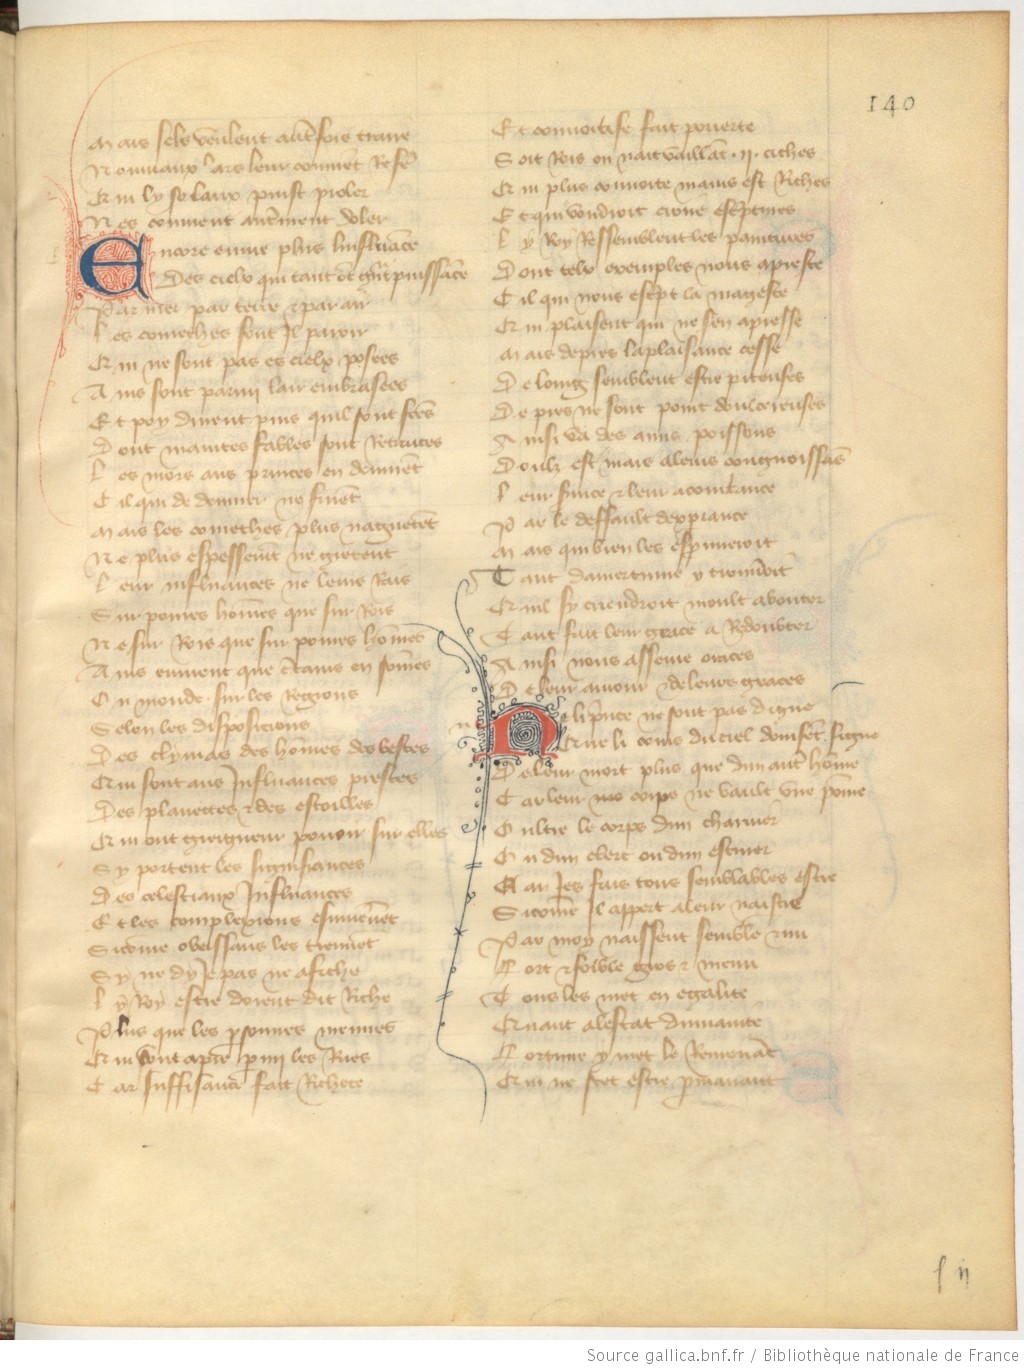 140
Mais sels veulent autresfois traire
Nouviaux l'ars leur convient refere
Qui ly solaux puist pioler
Nes comment autrement doler
Encore enme plus linfluance
Des cielx qui tant ot grant puissance
Par mer par terre et par air
Les comethes font Il paroir
Qui ne sont pas es cielx posees
Ains sont parmi lair embrasees
Et poy durent puis quil sont fetes
Dont maintes fables sont Retraites
Les mors aus princes en devinent
Cil qui de deviner ne finent
Mais les comethes plus naguetent
Ne plus espessement ne gietent
Leur influances ne leurs Rais
Sur poures hommes que sur Rois
Ne sur Rois que sur poures hommes
Ains euurent que certains en sommes
Ou monde sur les Regions
Selon les disposicions
Des clymas des hommes des bestes
Qui sont aus Influances prestes
Des planettes et des estoilles
Qui ont greigneur pouoir sur elles
Sy portent les signifiances
Des celestiaux Influances
Et les complexions esmuevent
Sicomme obeissans les treuvent
Sy ne dy Je pas ne afiche
Ly Roy estre doient dit Riche
Plus que les personnes menues
Qui vont apie parmi les Rues
Car suffisance fait Richece
Et couuoitise fait pouerte
Soit Rois ou nait vaillant .ii. ciches
Qui plus couuoite mains est Riches
Et qui vondroit croire escriptures
Ly Roy Ressemblent les paintures
Dont telx exemples nous apreste
Cil qui nous escript la mageste
Qui plaisent qui ne sen apresse
Mais de pres la plaisance cesse
De loing semblent estre piteuses
De pres ne sont point doulcereuses
Ainsi va des amis poissans
Doulx est mais aleurs congnoissans
Leur seruice et leur acointance
Par le deffault dexperiance
Mais qui bien les esprouueroit
Tant damertume y trouueroit
Quil sy criendroit moult abouter
Tant fait leur grace a Redoubter
Ainsi nous asseure oraces
De leur amour et de leurs graces
Ne li prince ne sont pas digne
Que li cours du ciel doinsent signe
De leur mort plus que dun autre homme
Car leur corps ne vault vne pomme
Oultre le corps dun charuier
Ou dun clerc ou dun escuier
Car Jes fais tous semblables estre
Sicomme Il appert aleur naistre
Par moy naissent semble et nu
Fort et foible gros et menu
Tous les met en egalite
Quant a lestat dumanite
Fortune y met le Remenant
Qui ne scet estre permanant